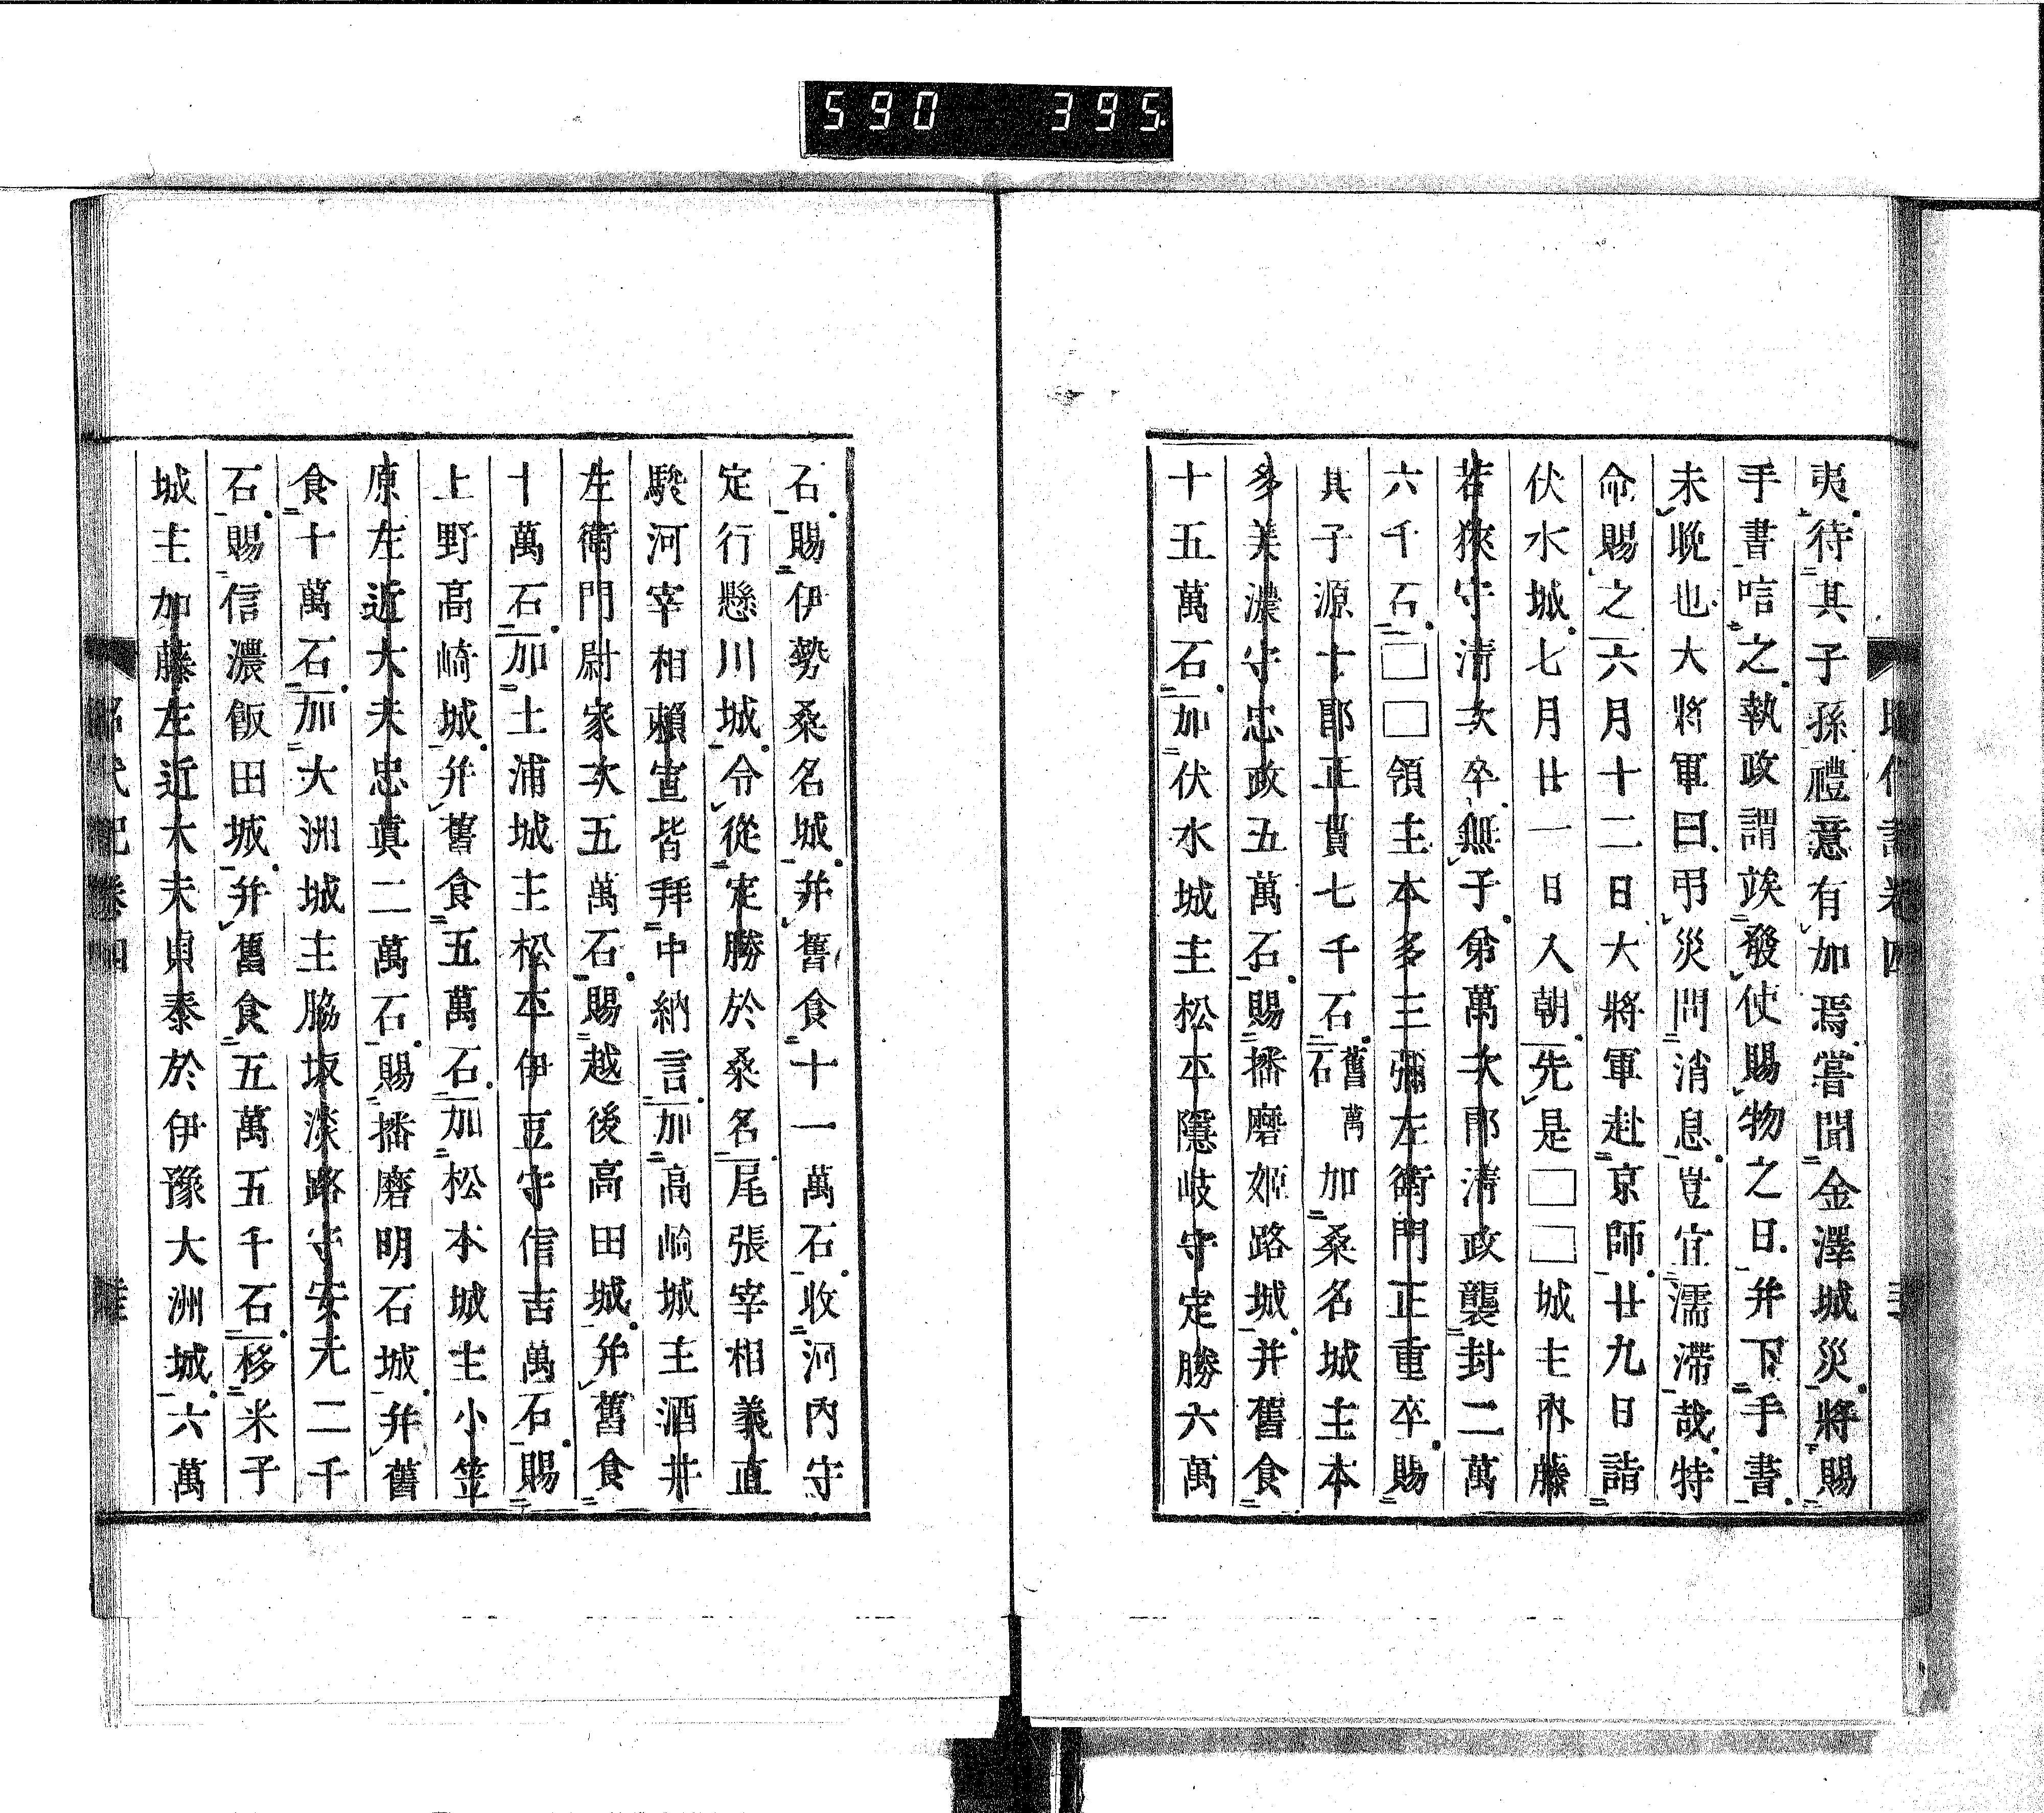 590 395
夷待其子孫禮意有加焉嘗聞金澤城災將賜
手書唁之執政謂竢發使賜物之日并下手書
未晩也大將軍曰弔災問消息豈宜濡滯哉特
命賜之六月十二日大將軍赴京師廿九日詣
伏水城七月廿一日入朝先是□□城主內藤
若狹守清次卒無子弟萬次郎清政襲封二萬
六千石□□領主本多三彌左衛門正重卒賜
其子源十郎正貫七千石舊萬石加桑名城主本
多美濃守忠政五萬石賜播磨姬路城并舊食
十五萬石加伏水城主松平隱岐守定勝六萬
石賜伊勢桑名城并舊食十一萬石收河內守
定行懸川城令從定勝於桑名尾張宰相義直
駿河宰相賴宣皆拜中納言加高崎城主酒井
左衛門尉家次五萬石賜越後高田城并舊食
十萬石加土浦城主松平伊豆守信吉萬石賜
上野高崎城并舊食五萬石加松本城主小笠
原左近大夫忠真二萬石賜播磨明石城并舊
食十萬石加大洲城主脇坂淡路守安元二千
石賜信濃飯田城并舊食五萬五千石移米子
城主加藤左近大夫貞泰於伊豫大洲城六萬